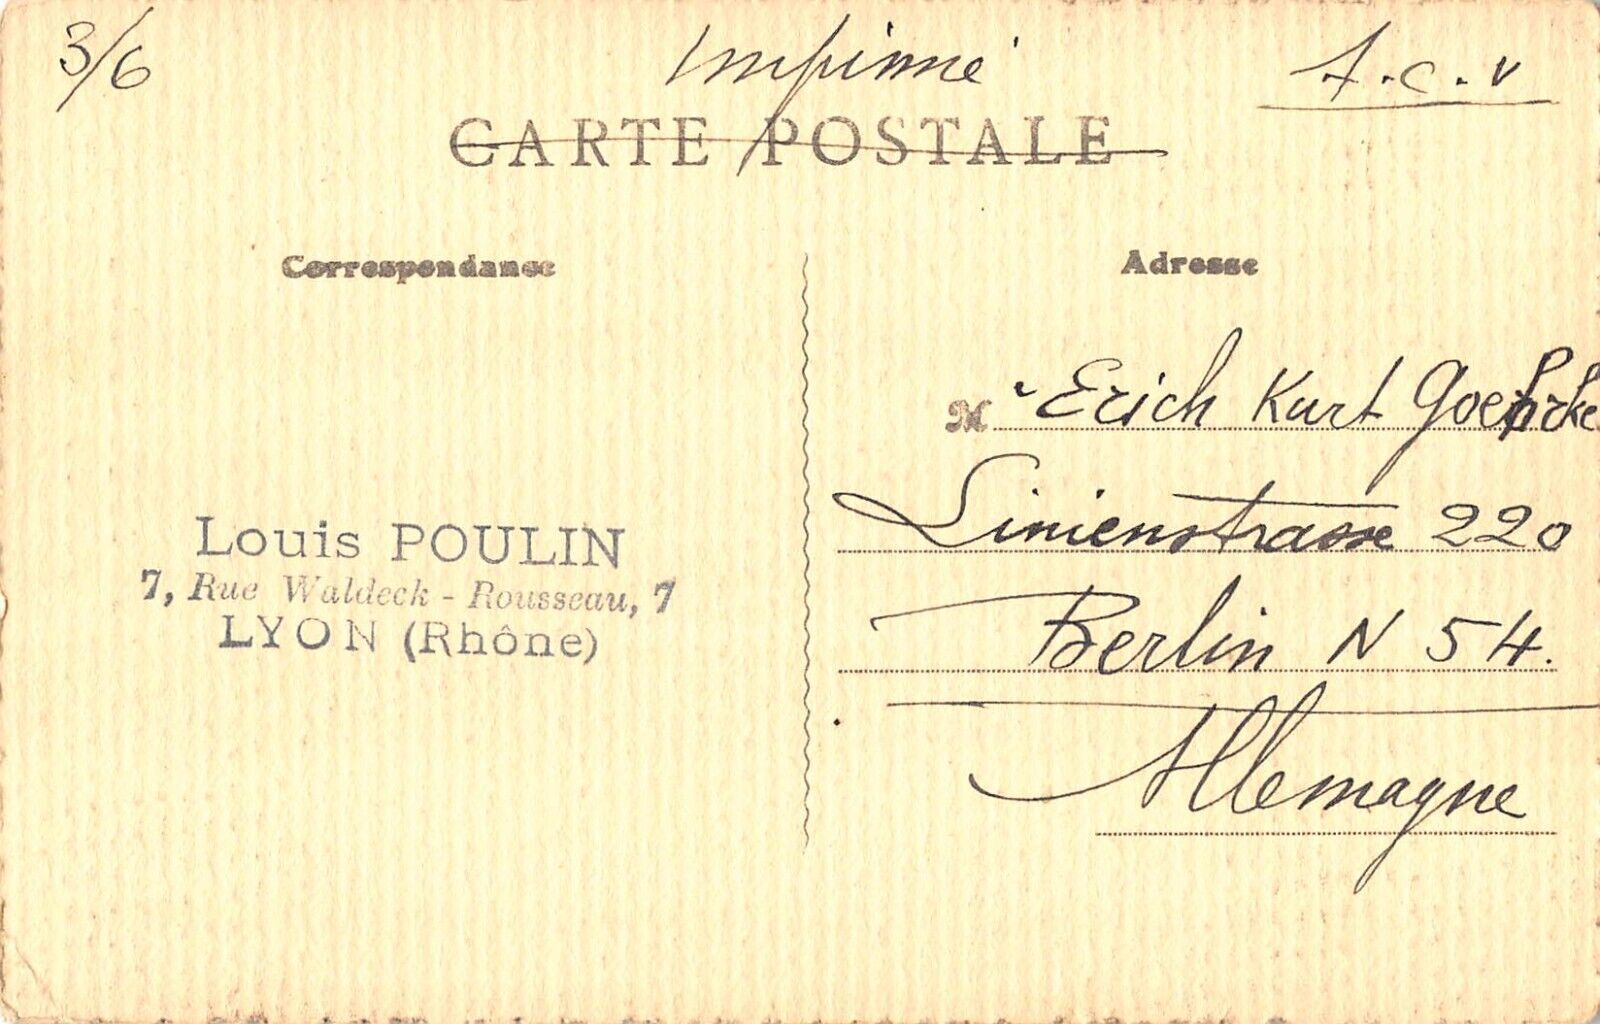 3/6
Imprimé
T.C.V
CARTE POSTALE
Correspondance
Adresse
M Erich Kurt Goehrke
Linienstrasse 220
Berlin N 54.
Allemagne
Louis POULIN
7, Rue Waldeck - Rousseau, 7
LYON (Rhône)